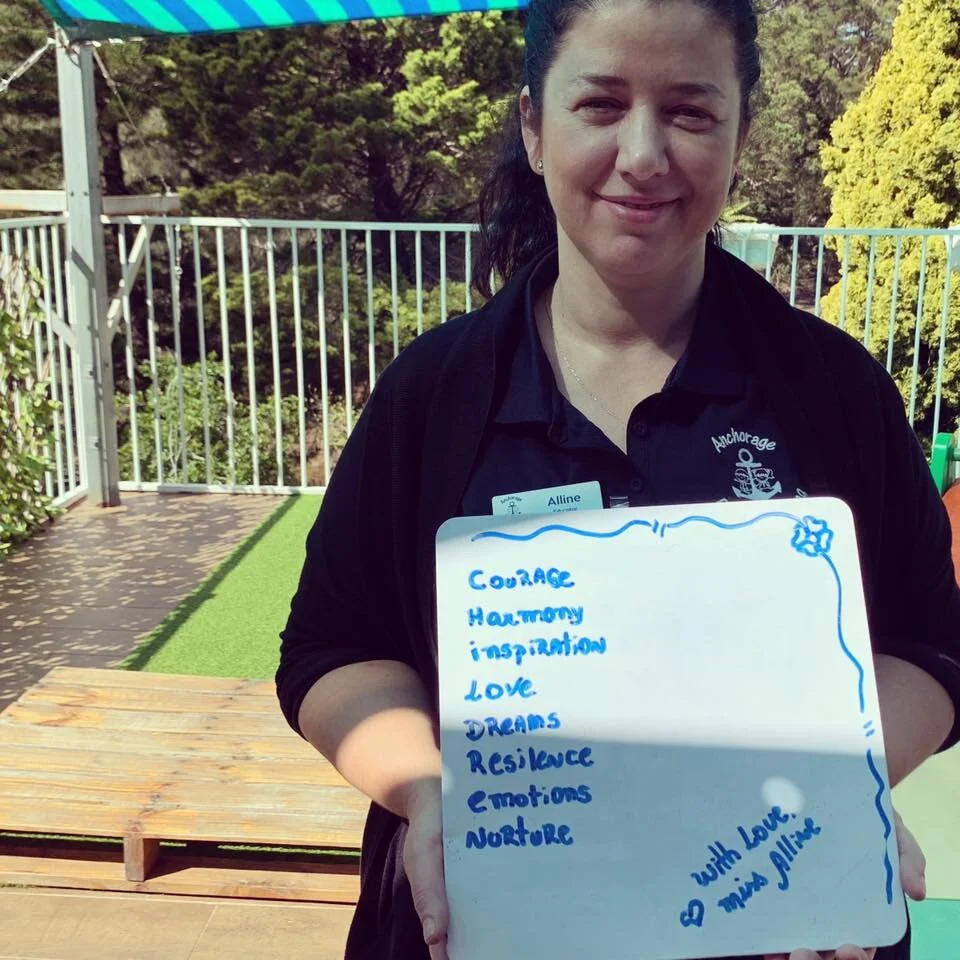 Anchorage
Alline
Educator
COURAGE
Harmony
inspiration
Love
DReams
Resilence
emotions
NURTURe
with Love,
miss Alline